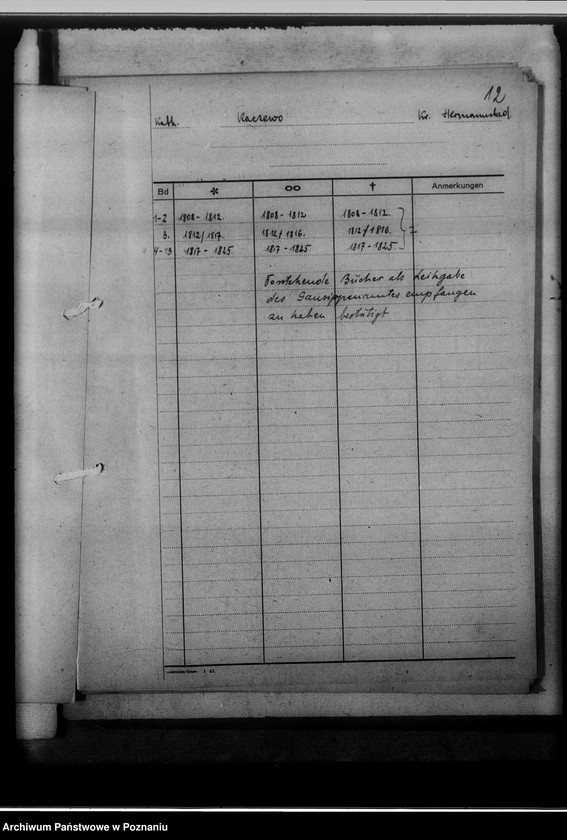 12
Kath. Kaczewo Kr. Hermannsbad.
Bd * ∞ † Anmerkungen
1-2 1808-1812. 1808-1812. 1808-1812.
3. 1812/1817. 1812/1816. 1812/1816.
4-13 1817-1825 1817-1825 1817-1825
Vorstehende Bücher als Leihgabe
des Gausippenamtes empfangen
zu haben bestätigt
Archiwum Państwowe w Poznaniu